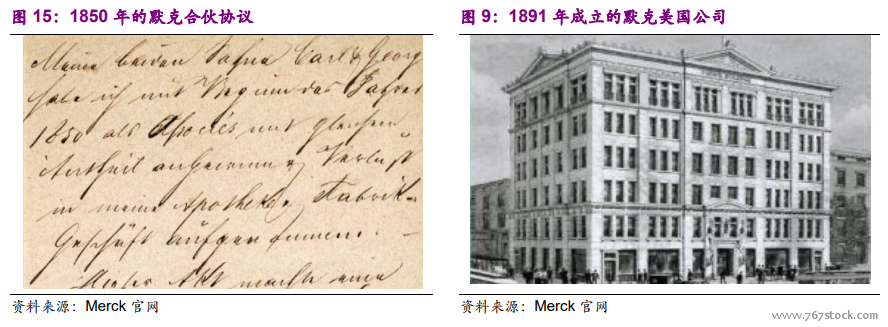 图 15：1850 年的默克合伙协议
Meine beiden Söhne Carl & Georg
habe ich mit Beginn des Jahres
1850 als Associés mit gleichem
Antheil an Gewinn & Verlust
in meine Apotheke & Fabrik-
Geschäft aufgenommen.
Dieser Akt machte eine
资料来源：Merck 官网
图 9：1891 年成立的默克美国公司
资料来源：Merck 官网
www.767stock.com